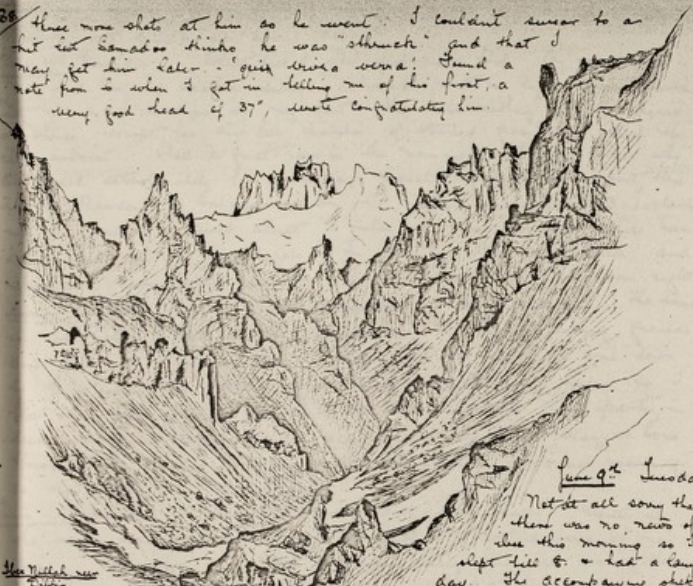 38/
three more shots at him as he went. I couldn't swear to a
hit but Samadoo thinks he was "struck" and that I
may get him later. Found a
note from when I got in telling me of his first, a
very good head of 37", wrote congratulating him.
June 9th Tuesda
Not at all sorry the
there was no news o
else this morning so I
slept till 8 & had a la
day. The
Nullah near